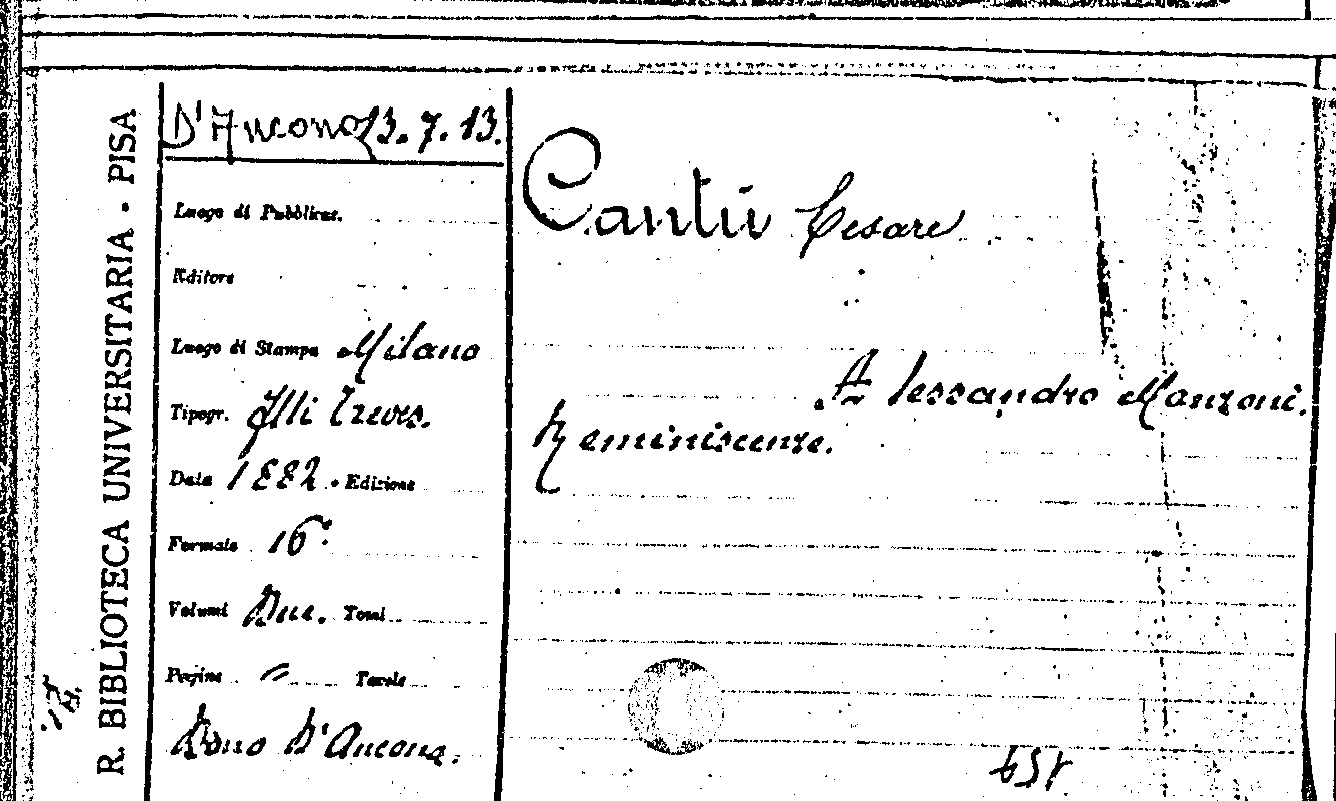 R. BIBLIOTECA UNIVERSITARIA - PISA
D'Ancona 13. 7. 13.
Luogo di Pubblicaz.
Editore
Luogo di Stampa Milano
Tipogr. flli Treves.
Data 1882. Edizione
Formato 16°.
Volumi Due. Tomi
Pagine " Tavole
Dono D'Ancona.
Cantù Cesare
Alessandro Manzoni.
Reminiscenze.